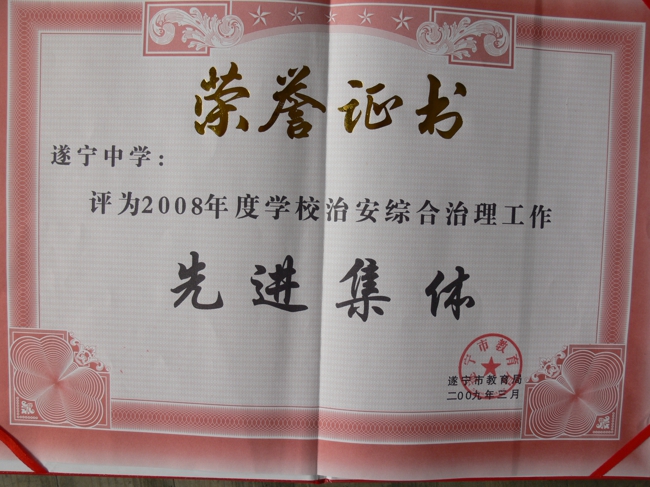 荣誉证书
遂宁中学：
评为2008年度学校治安综合治理工作
先进集体
宁市教育
遂宁市教育局
二00九年三月